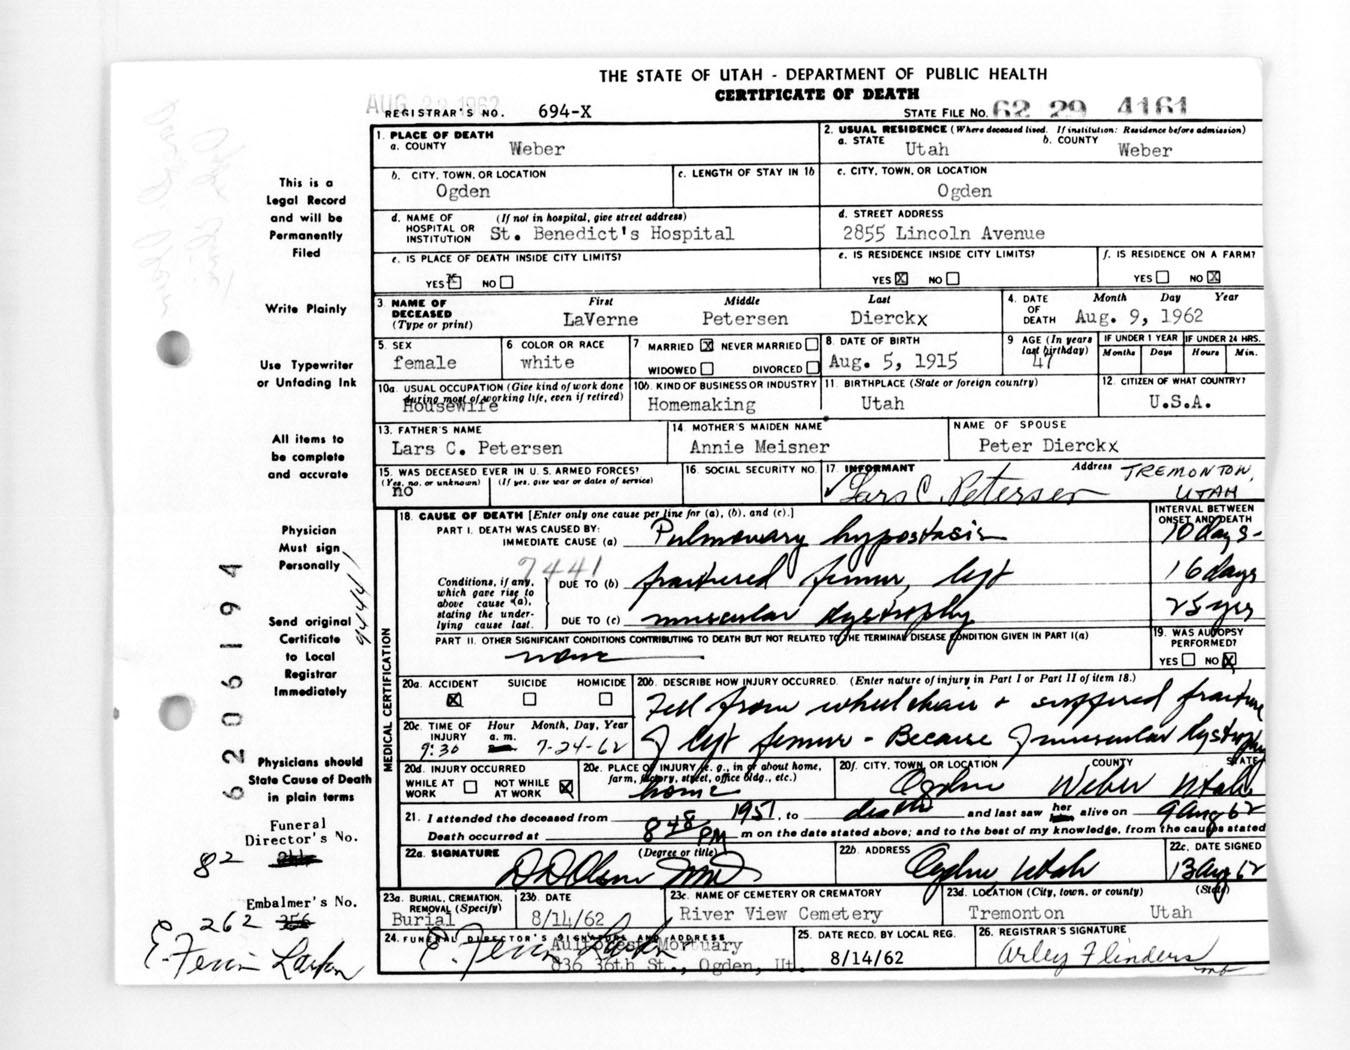 THE STATE OF UTAH - DEPARTMENT OF PUBLIC HEALTH
CERTIFICATE OF DEATH
REGISTRAR'S NO. 694-X
STATE FILE NO. 62 29 4161
1. PLACE OF DEATH
a. COUNTY Weber
2. USUAL RESIDENCE (Where deceased lived. If institution: Residence before admission)
a. STATE Utah b. COUNTY Weber
b. CITY, TOWN, OR LOCATION
Ogden
c. LENGTH OF STAY IN 1b
c. CITY, TOWN, OR LOCATION
Ogden
d. NAME OF HOSPITAL OR INSTITUTION (If not in hospital, give street address)
St. Benedict's Hospital
d. STREET ADDRESS
2855 Lincoln Avenue
e. IS PLACE OF DEATH INSIDE CITY LIMITS?
YES X NO
e. IS RESIDENCE INSIDE CITY LIMITS?
YES X NO
f. IS RESIDENCE ON A FARM?
YES NO X
3. NAME OF DECEASED (Type or print)
First Middle Last
LaVerne Petersen Dierckx
4. DATE OF DEATH Month Day Year
Aug. 9, 1962
5. SEX
female
6 COLOR OR RACE
white
7 MARRIED X NEVER MARRIED
WIDOWED DIVORCED
8 DATE OF BIRTH
Aug. 5, 1915
9 AGE (In years last birthday)
47
IF UNDER 1 YEAR IF UNDER 24 HRS.
Months Days Hours Min.
10a. USUAL OCCUPATION (Give kind of work done during most of working life, even if retired)
Housewife
10b. KIND OF BUSINESS OR INDUSTRY
Homemaking
11. BIRTHPLACE (State or foreign country)
Utah
12. CITIZEN OF WHAT COUNTRY?
U.S.A.
13. FATHER'S NAME
Lars C. Petersen
14 MOTHER'S MAIDEN NAME
Annie Meisner
NAME OF SPOUSE
Peter Dierckx
15. WAS DECEASED EVER IN U. S. ARMED FORCES?
(Yes, no, or unknown) (If yes, give war or dates of service)
no
16. SOCIAL SECURITY NO.
17. INFORMANT Address
Lars C Petersen TREMONTON, UTAH
18. CAUSE OF DEATH [Enter only one cause per line for (a), (b), and (c).]
INTERVAL BETWEEN ONSET AND DEATH
PART I. DEATH WAS CAUSED BY:
IMMEDIATE CAUSE (a) Pulmonary hypostasis 10 days -
7441
Conditions, if any, which gave rise to above cause (a), stating the underlying cause last.
DUE TO (b) fractured femur, left 16 days
DUE TO (c) muscular dystrophy 25 yrs
PART II. OTHER SIGNIFICANT CONDITIONS CONTRIBUTING TO DEATH BUT NOT RELATED TO THE TERMINAL DISEASE CONDITION GIVEN IN PART I(a)
none
19. WAS AUTOPSY PERFORMED?
YES NO X
MEDICAL CERTIFICATION
20a. ACCIDENT SUICIDE HOMICIDE
X
20b. DESCRIBE HOW INJURY OCCURRED. (Enter nature of injury in Part I or Part II of item 18.)
Fell from wheelchair + suffered fracture
of left femur - Because of muscular dystrophy
20c. TIME OF INJURY Hour a. m. Month, Day, Year
9:30 7-24-62
20d. INJURY OCCURRED
WHILE AT WORK NOT WHILE AT WORK X
20e. PLACE OF INJURY (e. g., in or about home, farm, factory, street, office bldg., etc.)
home
20f. CITY, TOWN, OR LOCATION COUNTY STATE
Ogden Weber Utah
21. I attended the deceased from 1951, to death and last saw her alive on 9 Aug 62
Death occurred at 8 48 PM m on the date stated above; and to the best of my knowledge, from the causes stated
22a. SIGNATURE (Degree or title)
D D Olson MD
22b. ADDRESS
Ogden Utah
22c. DATE SIGNED
13 Aug 62
23a. BURIAL, CREMATION, REMOVAL (Specify)
Burial
23b. DATE
8/14/62
23c. NAME OF CEMETERY OR CREMATORY
River View Cemetery
23d. LOCATION (City, town, or county) (State)
Tremonton Utah
24. FUNERAL DIRECTOR'S SIGNATURE AND ADDRESS
E. Fervin Larkin
Mortuary
836 36th St., Ogden, Ut.
25. DATE RECD. BY LOCAL REG.
8/14/62
26. REGISTRAR'S SIGNATURE
Arley Flinders
This is a
Legal Record
and will be
Permanently
Filed
Write Plainly
Use Typewriter
or Unfading Ink
All items to
be complete
and accurate
Physician
Must sign
Personally
Send original
Certificate
to Local
Registrar
Immediately
6206194
Physicians should
State Cause of Death
in plain terms
Funeral
Director's No.
82
Embalmer's No.
262 256
E. Fervin Larkin